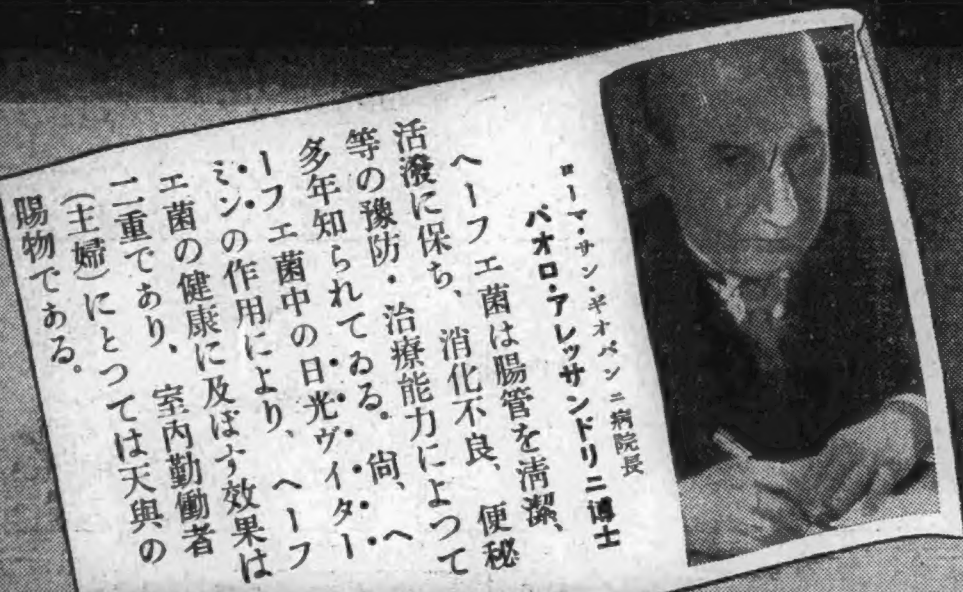 ローマ・サン・ギオバンニ病院長
パオロ・アレッサンドリニ博士
ヘーフェ菌は腸管を清潔、
活潑に保ち、消化不良、便秘
等の豫防・治療能力によつて
多年知られてゐる。尙、ヘ
ーフェ菌中の日光ヴィター
ミンの作用により、ヘーフ
エ菌の健康に及ぼす效果は
二重であり、室內勤働者
(主婦)にとつては天與の
賜物である。